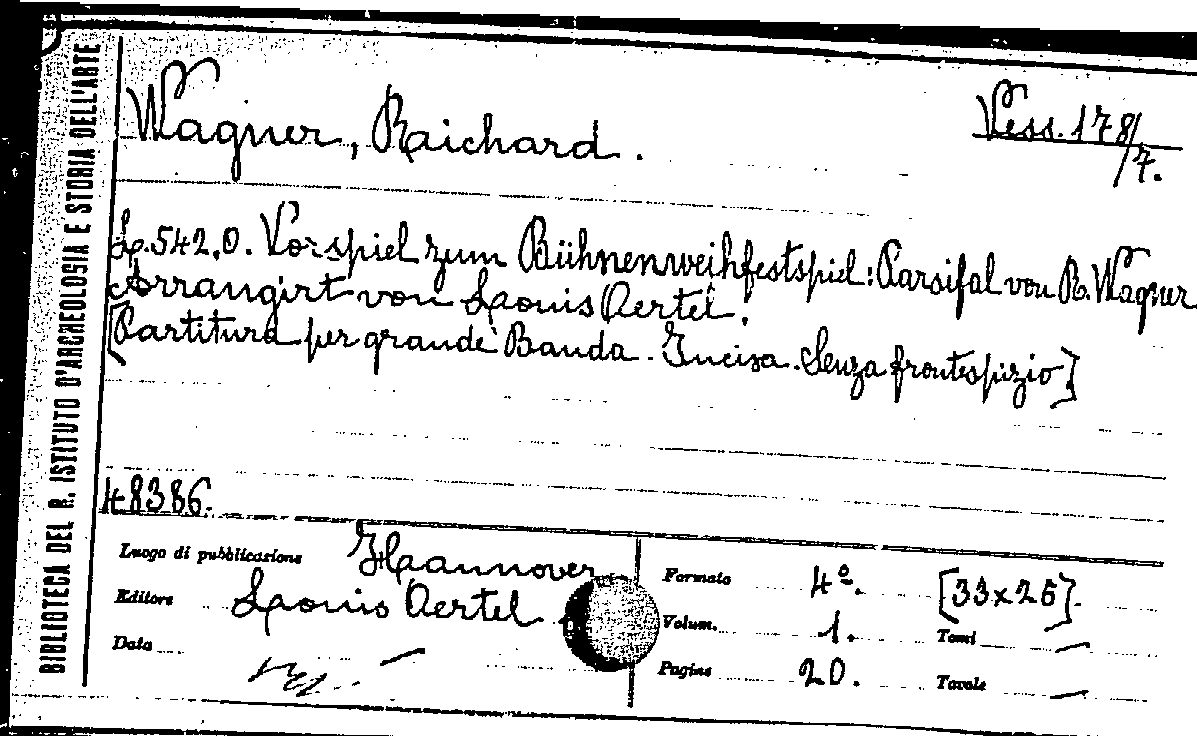 BIBLIOTECA DEL R. ISTITUTO D'ARCHEOLOGIA E STORIA DELL'ARTE
Wagner, Richard.
Vess. 178/7.
L. 542. O. Vorspiel zum Bühnenweihfestspiel: Parsifal von R. Wagner
Arrangirt von Louis Oertel.
[Partitura per grande Banda. Incisa. Senza frontespizio]
48386.
Luogo di pubblicazione Hannover
Formato 4º. [33x26].
Editore Louis Oertel
Volum. 1. Tomi —
Data —
Pagine 20. Tavole —